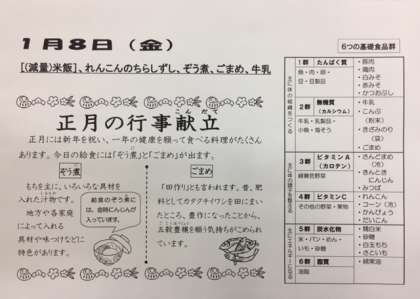 1月8日（金）
[(減量)米飯]、れんこんのちらしずし、ぞう煮、ごまめ、牛乳
正月の行事献立
こんだて
正月には新年を祝い、一年の健康を願って食べる料理がたくさん
あります。今日の給食には「ぞう煮」と「ごまめ」が出ます。
ぞう煮
もちを主に、いろいろな具材を
入れた汁物です。
地方や各家庭
によって入れる
具材や味つけなどに
特色があります。
給食のぞう煮に
は、金時にんじんが
入っています。
ごまめ
「田作り」とも言われます。昔、肥
料としてカタクチイワシを田にまい
たところ、豊作になったことから、
五穀豊穣を願う気持ちがこめられ
ています。
6つの基礎食品群
主に体の組織をつくる
1群 たんぱく質
魚・肉・卵・
豆・豆製品
・豚肉
・鶏肉
・白みそ
・赤みそ
・かつおぶし
2群 無機質
(カルシウム)
牛乳・乳製品・
小魚・海そう
・牛乳
・こんぶ
(粉末)
・きざみのり
(袋)
・ごまめ
主に体の調子を整える
3群 ビタミンA
(カロテン)
緑黄色野菜
・さんどまめ
(冷)
・きんとき
にんじん
・みつば
4群 ビタミンC
その他の野菜・果物
・れんこん
・コーン(冷)
・かんぴょう
・だいこん
主にエネルギーになる
5群 炭水化物
米・パン・めん・
いも・砂糖
・精白米
・砂糖
・白玉もち
・さといも
6群 脂質
油脂
・綿実油